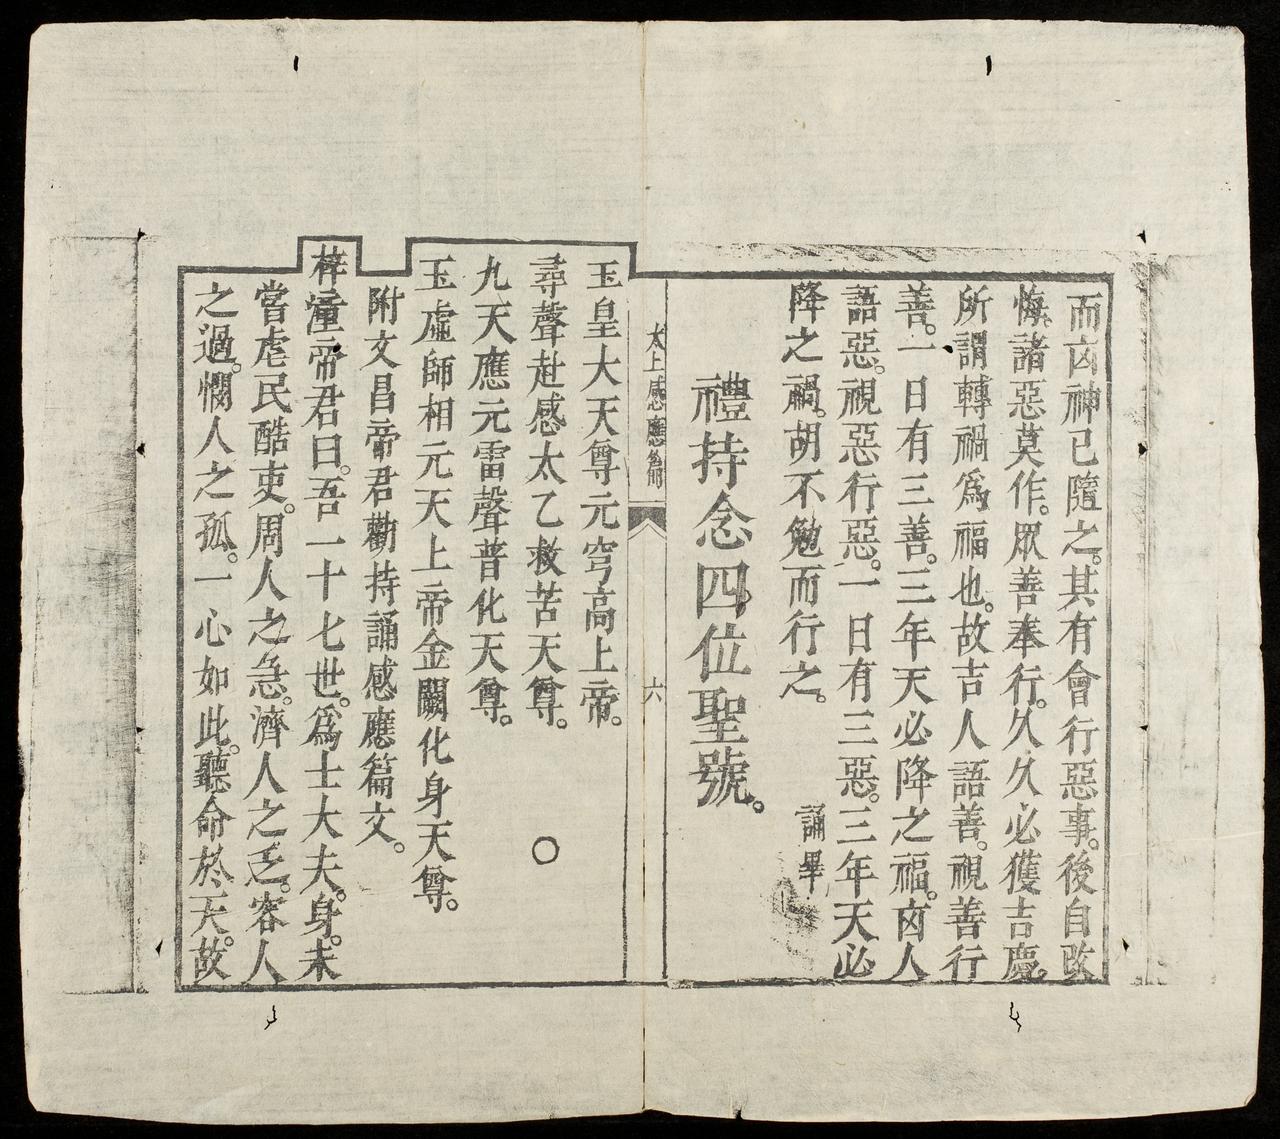 而㐫神已隨之。其有曾行惡事。後自改
悔。諸惡莫作。眾善奉行。久久必獲吉慶。
所謂轉禍爲福也。故吉人語善。視善行
善。一日有三善。三年天必降之福。㐫人
語惡。視惡行惡。一日有三惡。三年天必
降之禍。胡不勉而行之。 誦畢
禮持念四位聖號。
太上感應篇 六
玉皇大天尊元穹高上帝。
尋聲赴感太乙救苦天尊。〇
九天應元雷聲普化天尊。
玉虛師相元天上帝金闕化身天尊。
附文昌帝君勸持誦感應篇文。
梓潼帝君曰。吾一十七世。爲士大夫。身。未
嘗虐民酷吏。周人之急。濟人之乏。容人
之過。憫人之孤。一心如此。聽命於天。故